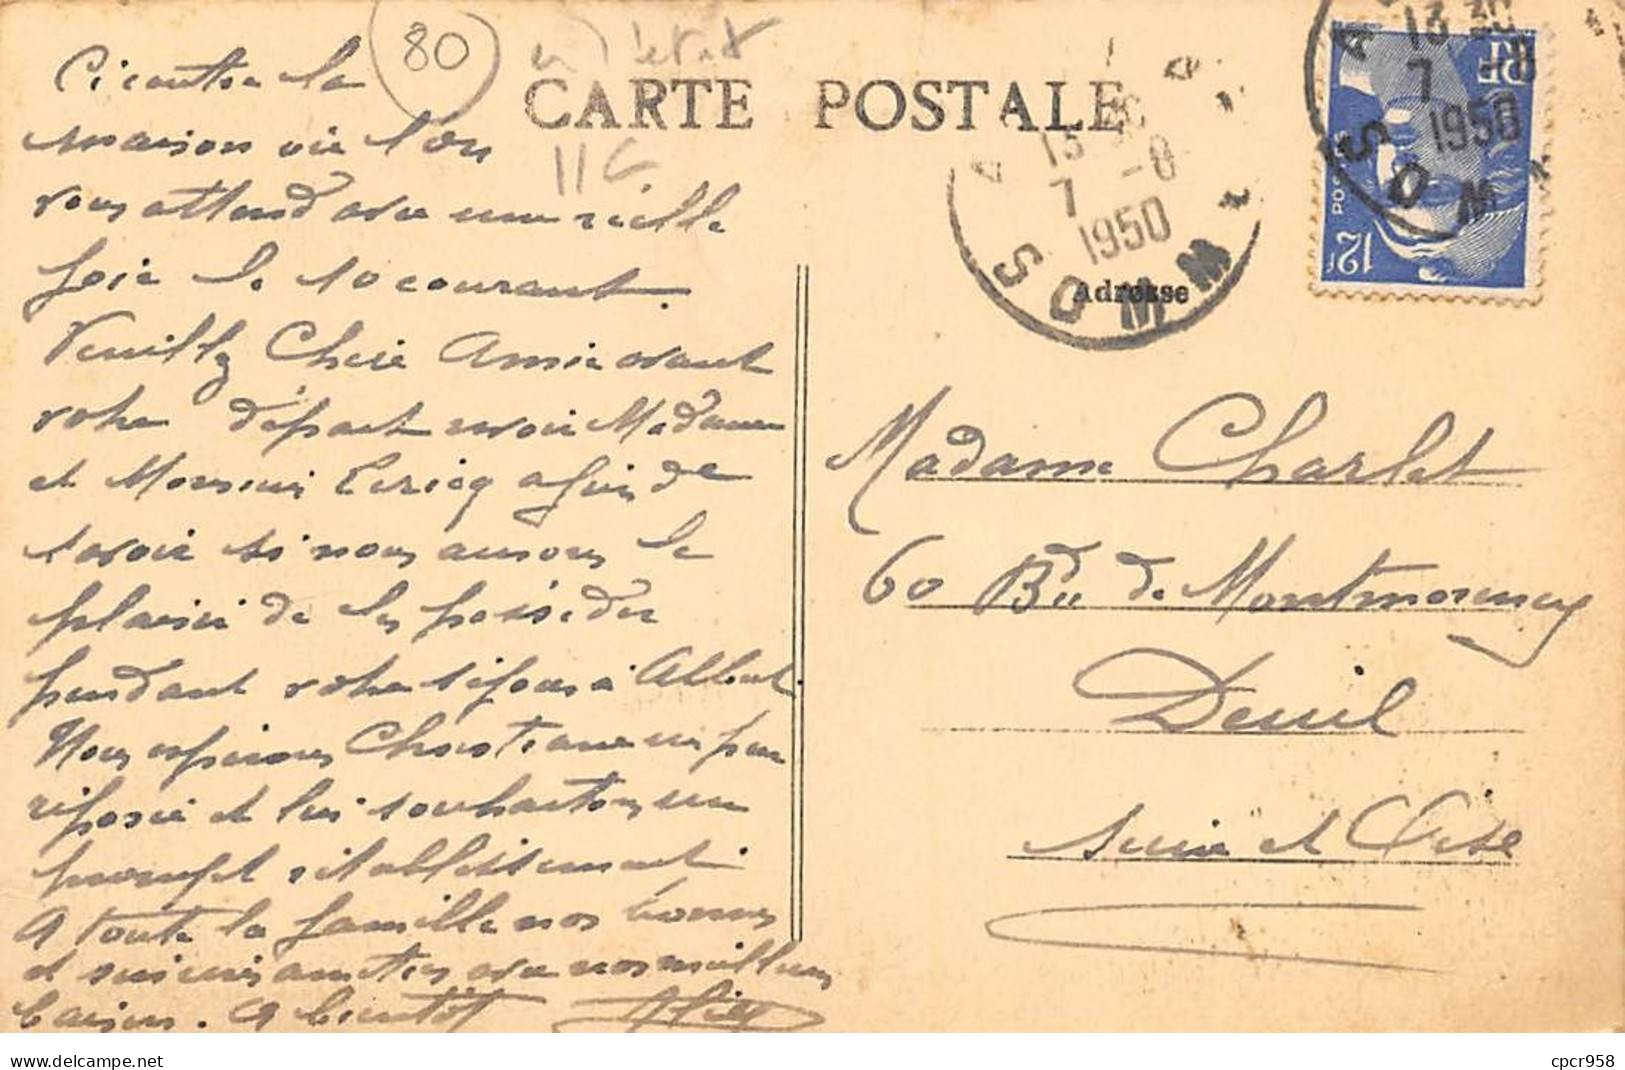 80
CARTE POSTALE
11G
Ci contre la
maison où l'on
vous attend avec une réelle
joie le 10 courant.
Veuillez Chère Amie avant
votre départ revoir Madame
et Monsieur Lericq afin de
savoir si nous aurons le
plaisir de les posséder
pendant votre séjour à Albert
Nous espérons Christiane un peu
reposée et lui souhaitons un
prompt rétablissement.
A toute la famille nos bonnes
et sincères amitiés avec nos meilleurs
baisers. A bientôt
13 30
7 -8
1950
SOMM
Adresse
13 30
7 -8
1950
SOMM
RF
POSTES
12F
Madame Charlet
60 Bd de Montmorency
Deuil
Seine et Oise
cpcr958